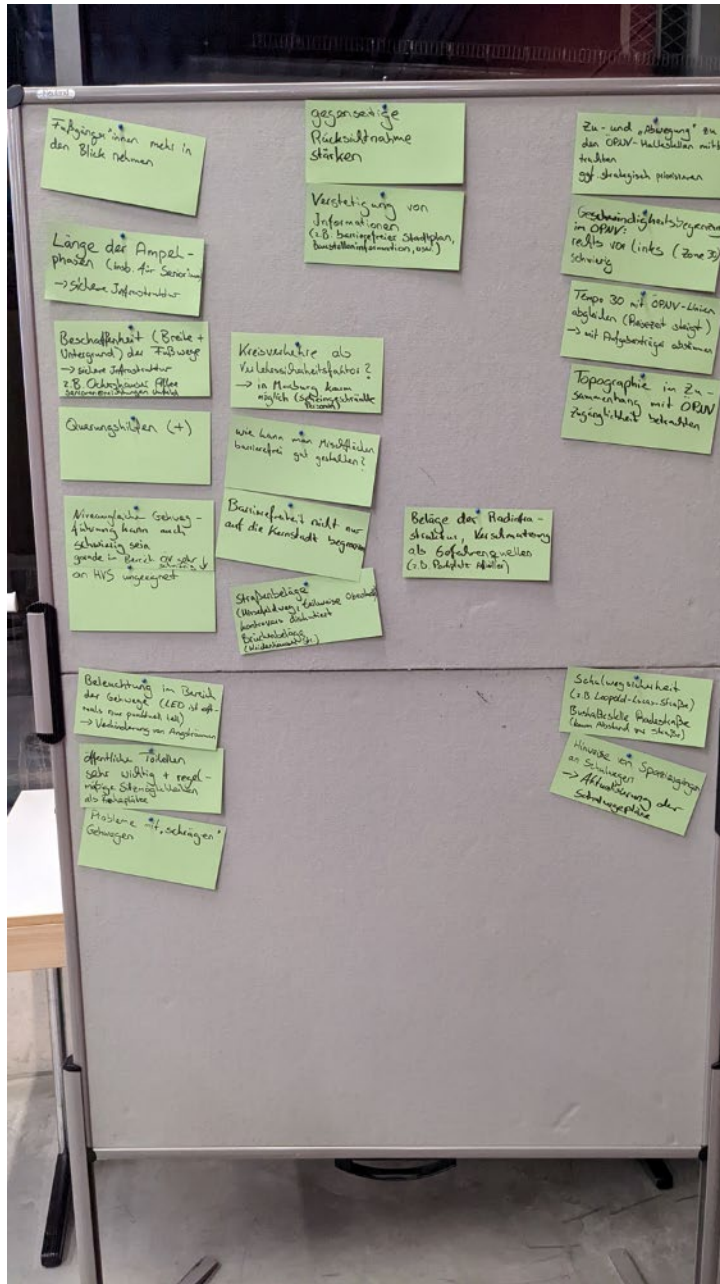 Fußgänger*innen mehr in
den Blick nehmen
Länge der Ampel-
phasen (insb. für Senioring
→ sichere Infrastruktur
Beschaffenheit (Breite +
Untergrund) der Fußwege
→ sichere Infrastruktur
z.B. Ockershäuser Allee
Senioreneinrichtungen
Querungshilfen (+)
Niveaugleiche Gehweg-
führung kann auch
schwierig sein
gerade im Bereich ÖV sehr
schwierig ↓
an HVS ungeeignet
Beleuchtung im Bereich
der Gehwege (LED ist oft-
mals nur punktuell hell)
→ Verhinderung von Angsträumen
öffentliche Toiletten
sehr wichtig + regel-
mäßige Sitzmöglichkeiten
als Ruheplätze
Probleme mit „schrägen“
Gehwegen
gegenseitige
Rücksichtnahme
stärken
Verstetigung von
Informationen
(z.B. barrierefreier Stadtplan,
Baustelleninformation, usw.)
Kreisverkehre als
Verkehrssicherheitsfaktor?
→ in Marburg kaum
möglich (seheingeschränkte
Personen)
wie kann man Mischflächen
barrierefrei gut gestalten?
Barrierefreiheit nicht nur
auf die Kernstadt begrenzen
Straßenbeläge
(teilweise Oberstadt)
kontrovers diskutiert
Brückenbeläge
(Weidenhausen)
Beläge der Radinfra-
struktur, Verschmutzung
als Gefahrenquellen
(z.B. Parkplatz
Zu- und „Abwegung“ zu
den ÖPNV-Haltestellen mitbe
trachten
ggf. strategisch priorisieren
Geschwindigkeitsbegrenzu
im ÖPNV:
rechts vor links (Zone 30
schwierig
Tempo 30 mit ÖPNV-Linien
abgleichen (Reisezeit steigt)
→ mit Aufgabenträger abstimmen
Topographie im Zu-
sammenhang mit ÖPNV
Zugänglichkeit betrachten
Schulwegsicherheit
(z.B. Leopold-Lucas-Straße)
Bushaltestelle Radestraße
(kaum Abstand zur Straße)
Hinweise von Spaziergängen
an Schulwegen
→ Aktualisierung der
Schulwegepläne